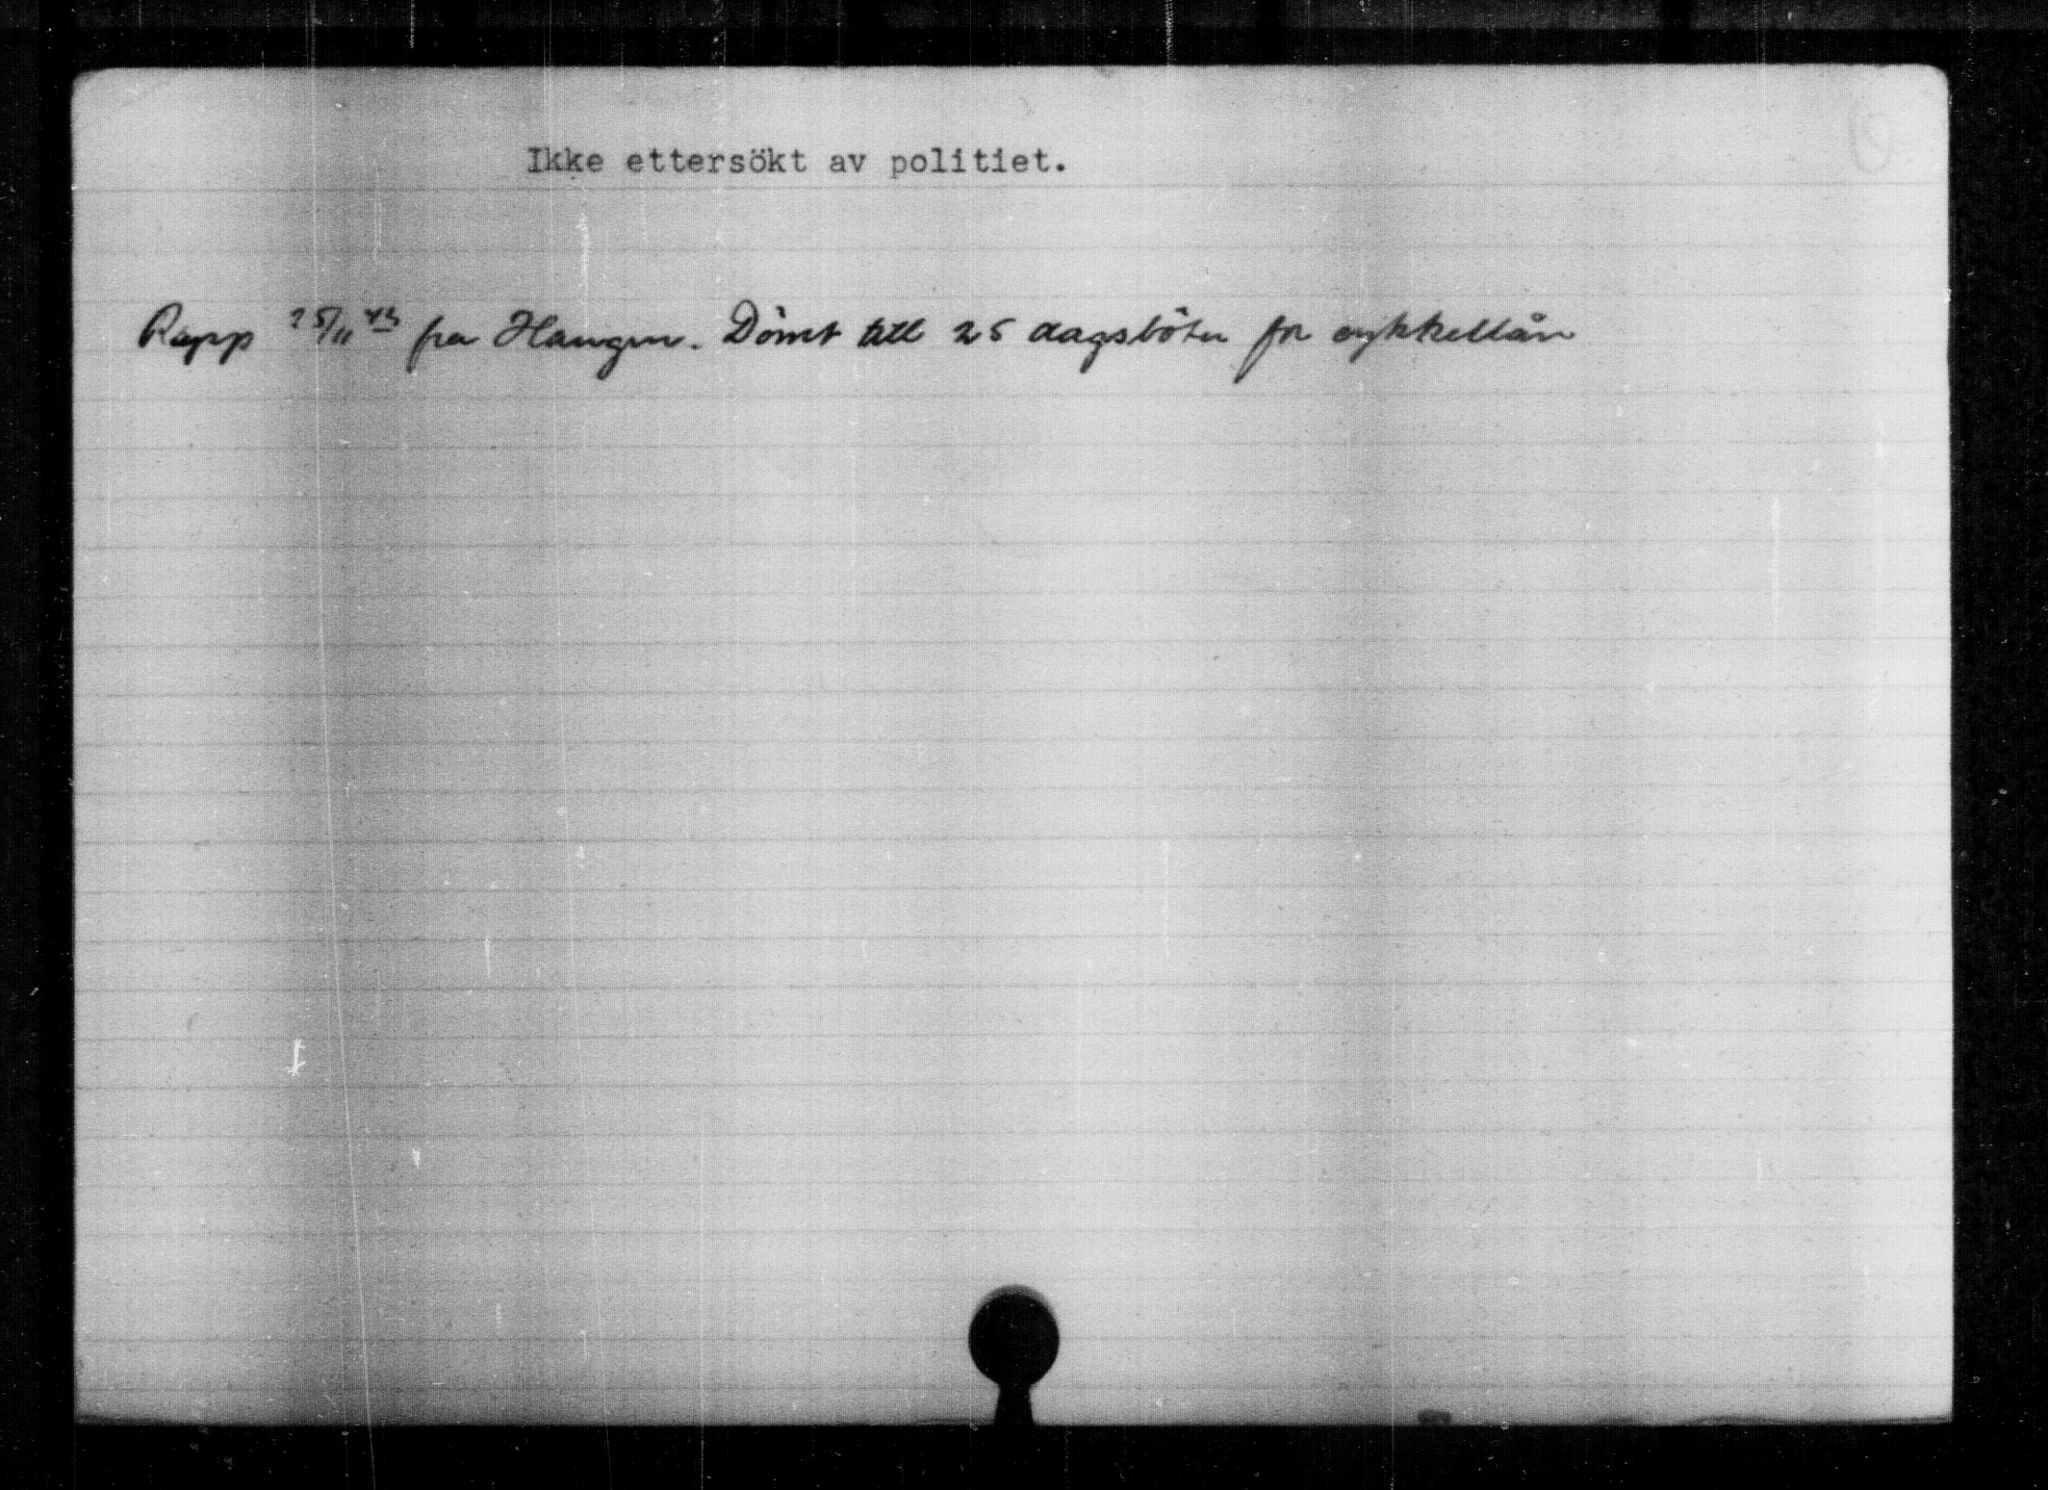 Ikke ettersökt av politiet.
Rapp 25/11 43 fra Haugen. Dömt till 25 dagsböter for cykkellån